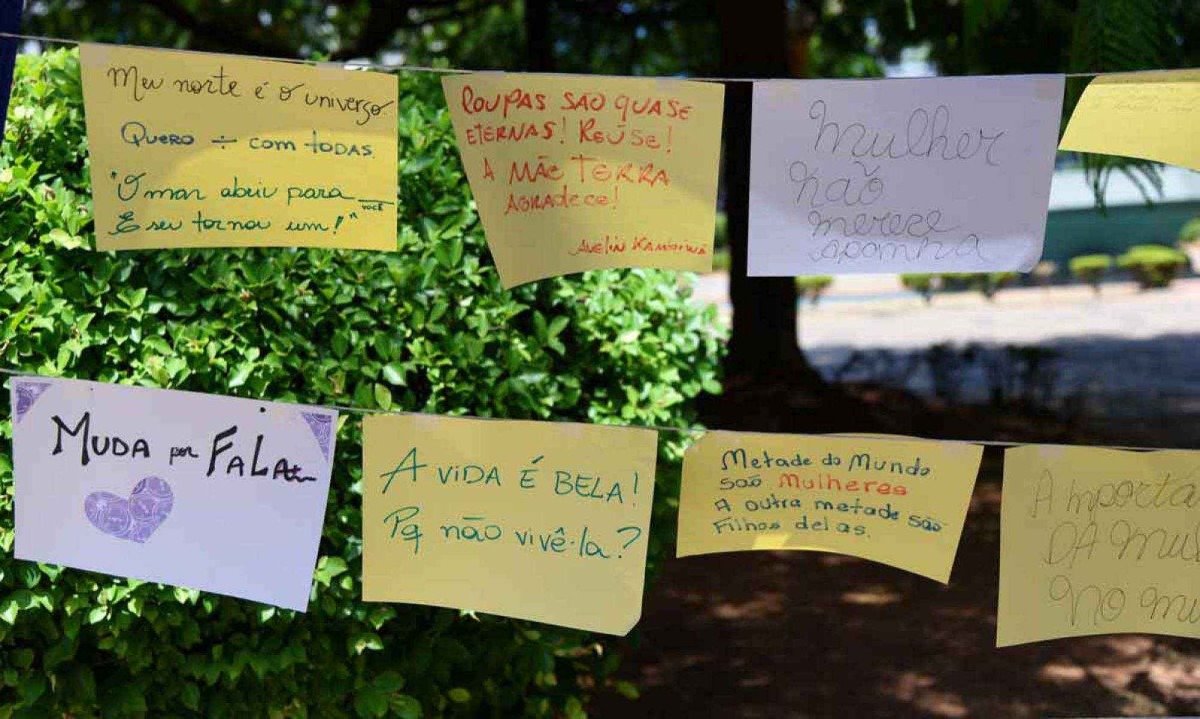 Meu norte é o universo
Quero ÷ com todas.
"O mar abriu para você
E seu tornou um!"
Roupas são quase
eternas! Reúse!
A Mãe Terra
agradece!
Mulher
não
merece
apanha
Muda por Fala
A vida é bela!
Pq não vivê-la?
Metade do Mundo
são Mulheres
A outra metade são
Filhos delas.
A importa
DA Mul
No mu